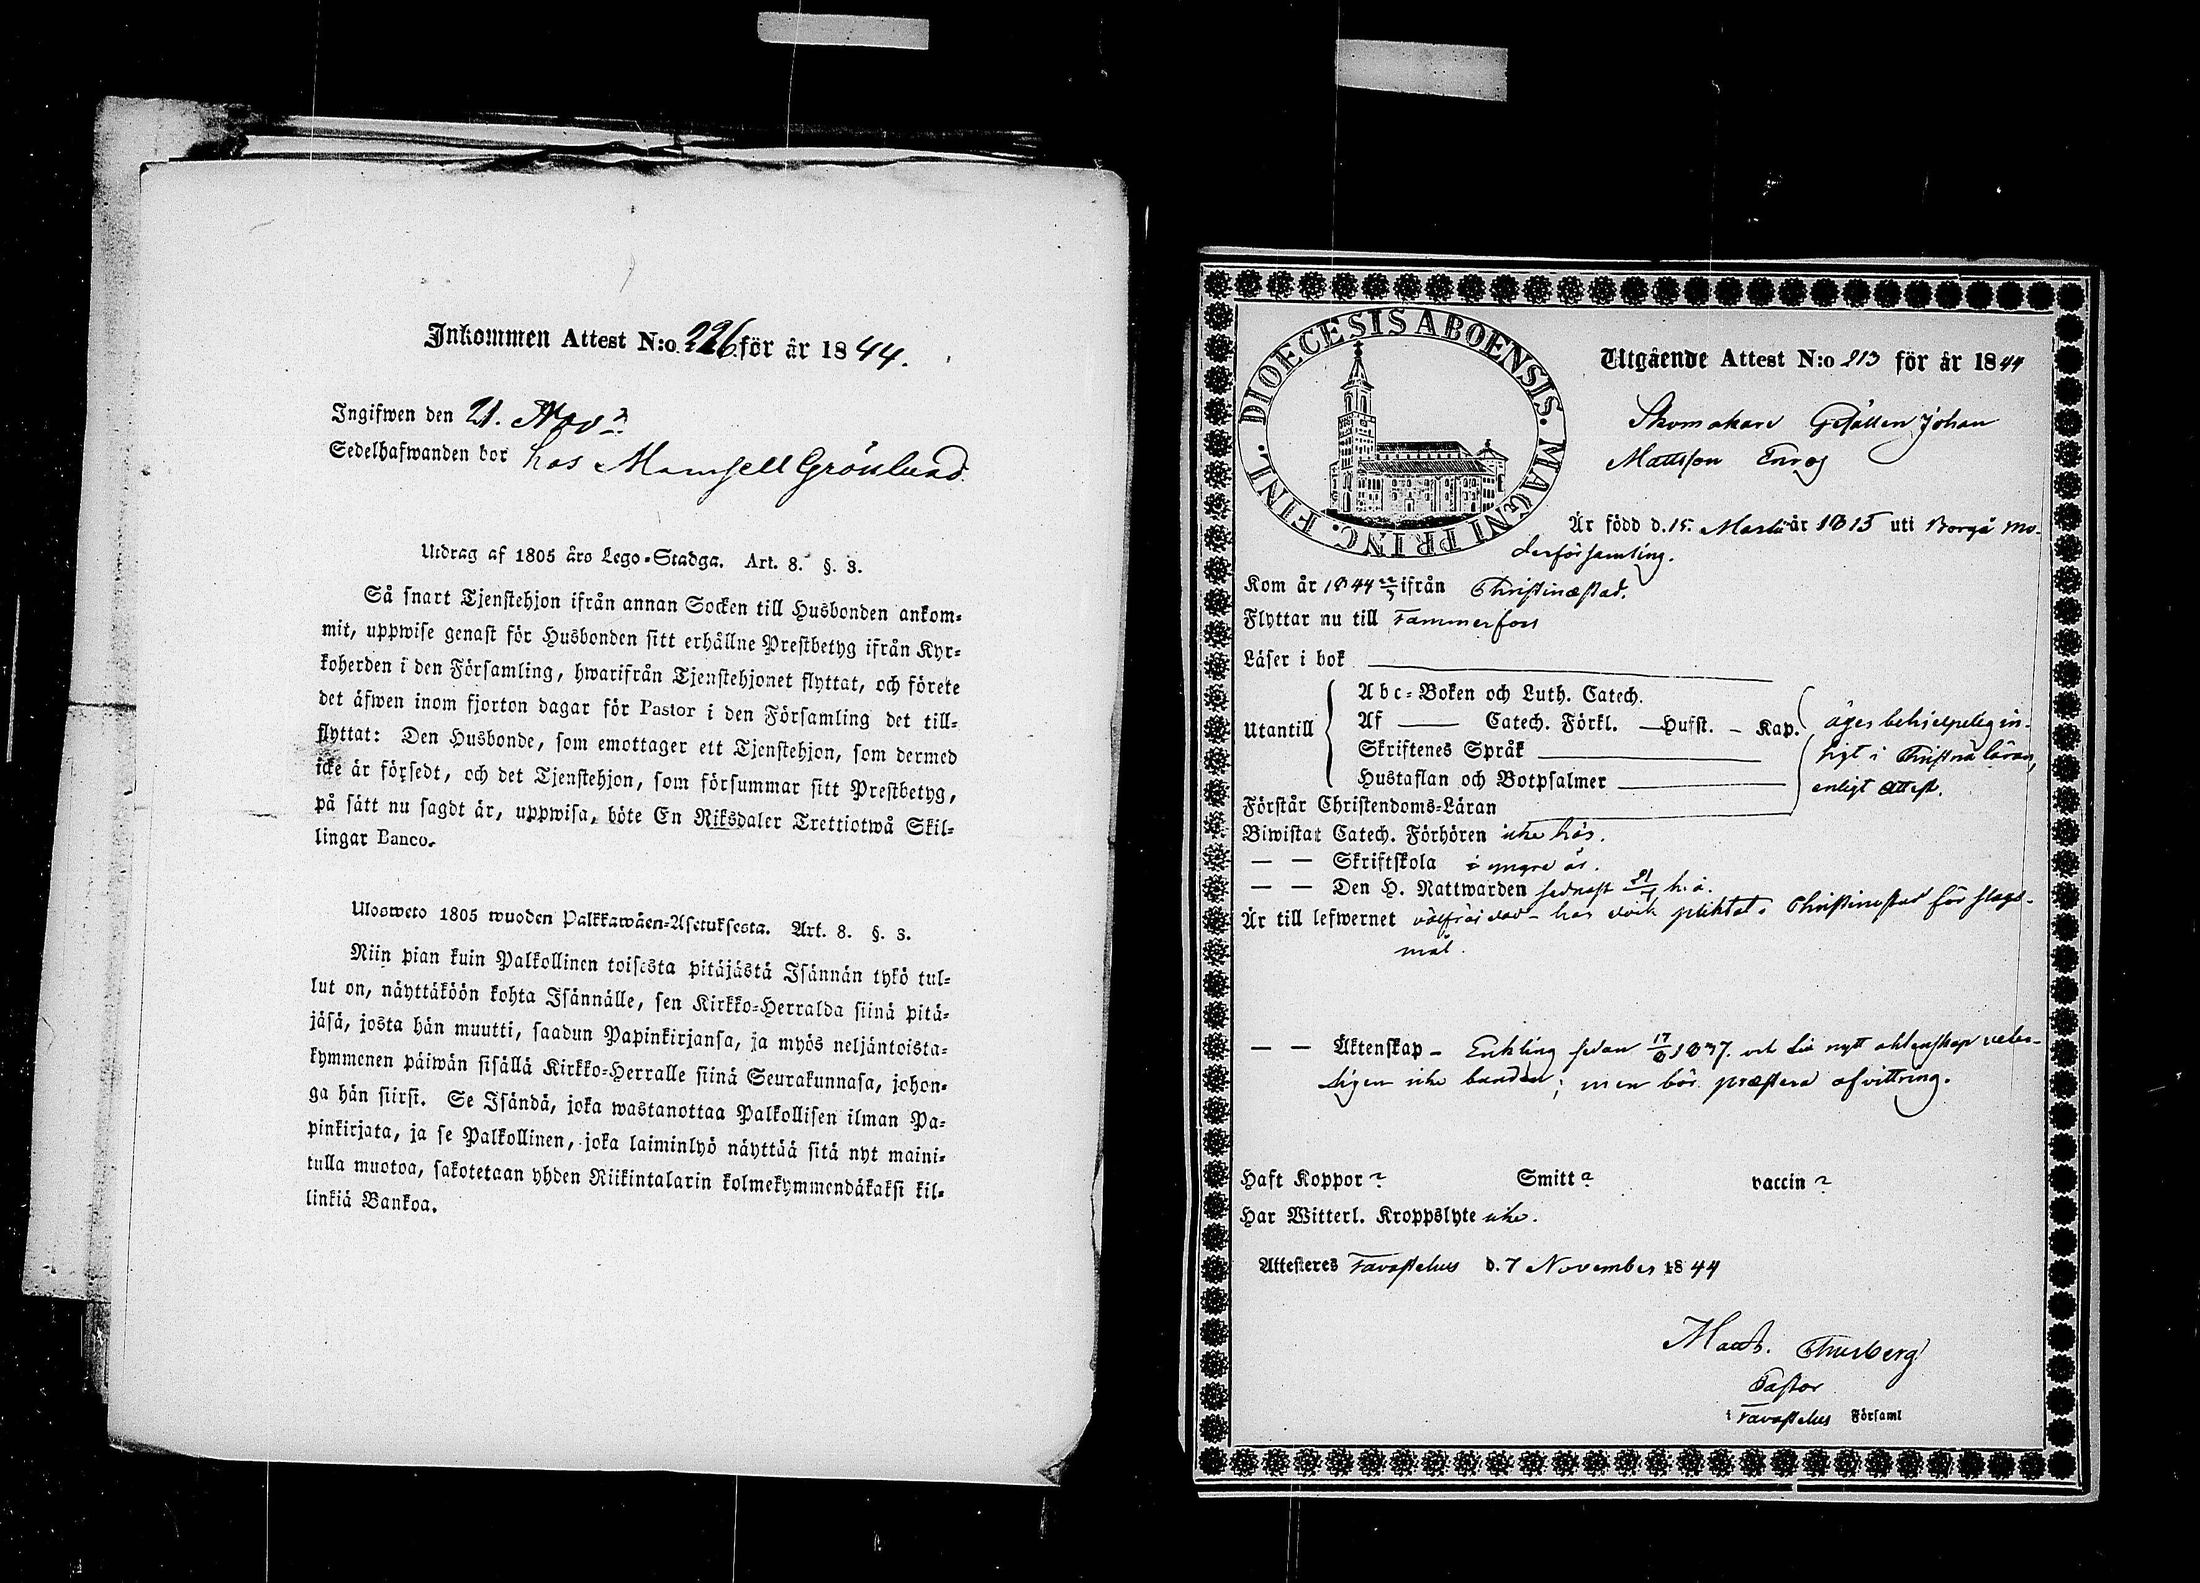 Inkommen Attest N:o 226 för år 1844.
Ingifwen den 21. Nov
Sedelhafwanden bor hos Mamsell Grönlund.
Utdrag af 1805 års Lego-Stadga. Art. 8. §. 3.
Så snart Tjenstehjon ifrån annan Socken till Husbonden ankom-
mit, uppwise genast för Husbonden sitt erhållne Prestbetyg ifrån Kyr-
koherden i den Församling, hwarifrån Tjenstehjonet flyttat, och förete
det äfwen inom fjorton dagar för Pastor i den Församling det till-
flyttat: Den Husbonde, som emottager ett Tjenstehjon, som dermed
icke är försedt, och det Tjenstehjon, som försummar sitt Prestbetyg,
på sätt nu sagdt är, uppwisa, böte En Riksdaler Trettiotwå Skil-
lingar Banco.
Ulosweto 1805 wuoden Palkkawäen-Asetuksesta. Art. 8. §. 3.
Niin pian kuin Palkollinen toisesta pitäjästä Isännän tykö tul-
lut on, näyttäköön kohta Isännälle, sen Kirkko-Herralda siinä pitä-
jäsä, josta hän muutti, saadun Papinkirjansa, ja myös neljäntoista-
kymmenen päiwän sisällä Kirkko-Herralle siinä Seurakunnasa, johon-
ga hän siirsi. Se Isändä, joka wastanottaa Palkollisen ilman Pa-
pinkirjata, ja se Palkollinen, joka laiminlyö näyttää sitä nyt maini-
tulla muotoa, sakotetaan yhden Riikintalarin kolmekymmendäkaksi kil-
linkiä Bankoa.
DIOECESIS ABOENSIS. MAGNI PRINC. FINL.
Utgående Attest N:o 213 för år 1844
Skomakare Gesällen Johan
Mattsson
Är född d. 15. Martii år 1815 uti Borgå Mo-
derförsamling.
Kom år 1844 ifrån Christinæstad.
Flyttar nu till Tammerfors
Läser i bok
Abc-Boken och Luth. Catech.
Utantill Af — Catech. Förkl. — Husst. — Kap. äger behjelpelig in-
Skriftenes Språk sigt i Christna läran,
Hustaflan och Botpsalmer enligt attest.
Förstår Christendoms-Läran
Biwistat Catech. Förhören icke här.
— — Skriftskola i yngre år.
— — Den H. Nattwarden sednast 21/7 h. å.
Är till lefwernet välfräjdad - har dock pliktat i Christinestad för slags-
mål.
— — Äktenskap - Enkling sedan 17/8 1837. och till nytt äktenskap veter-
ligen icke bunden; men bör præstera afvittring.
Haft Koppor ? Smitt ? vaccin ?
Har Witterl. Kroppslyte icke.
Attesteres Tavastehus d. 7 November 1844
Pastor
i Tavastehus Församl